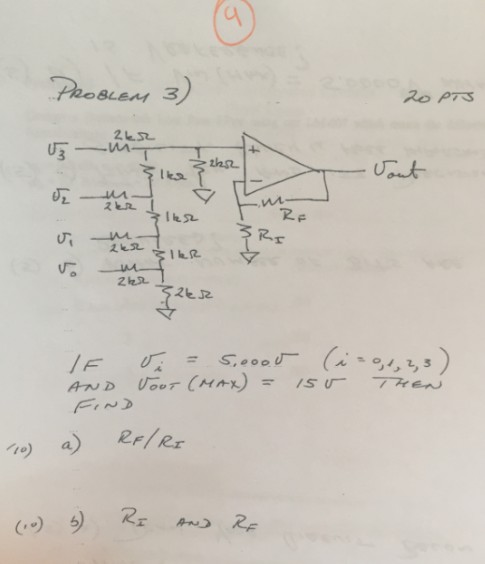 9
PROBLEM 3) 20 PTS
2kΩ
V3 + 2kΩ Vout
1kΩ
V2 2kΩ - RF
1kΩ RI
V1 2kΩ
1kΩ
V0 2kΩ
2kΩ
IF Vi = 5.000V (i = 0,1,2,3)
AND VOUT (MAX) = 15V THEN
FIND
(10) a) RF/RI
(10) b) RI AND RF